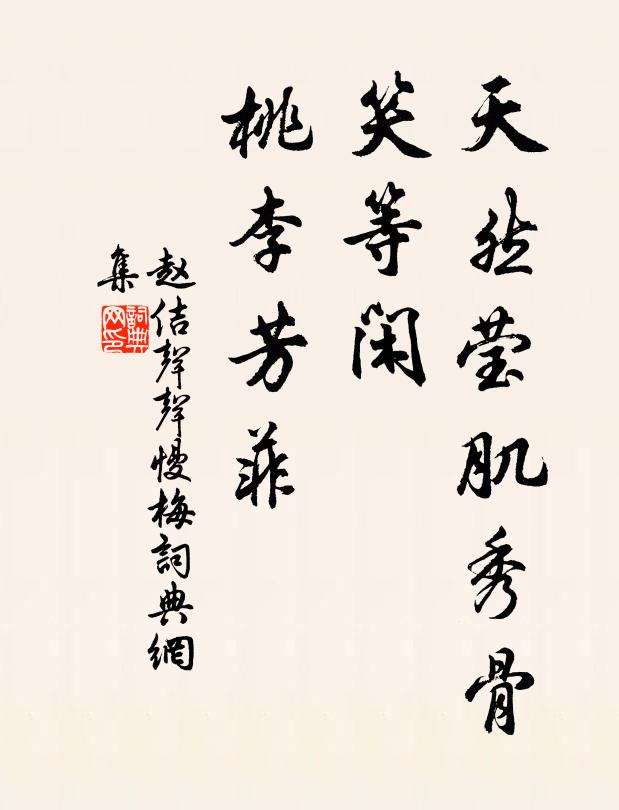 天然莹肌秀骨
笑等闲
桃李芳菲
赵佶声声慢梅词典网
集
词典网印